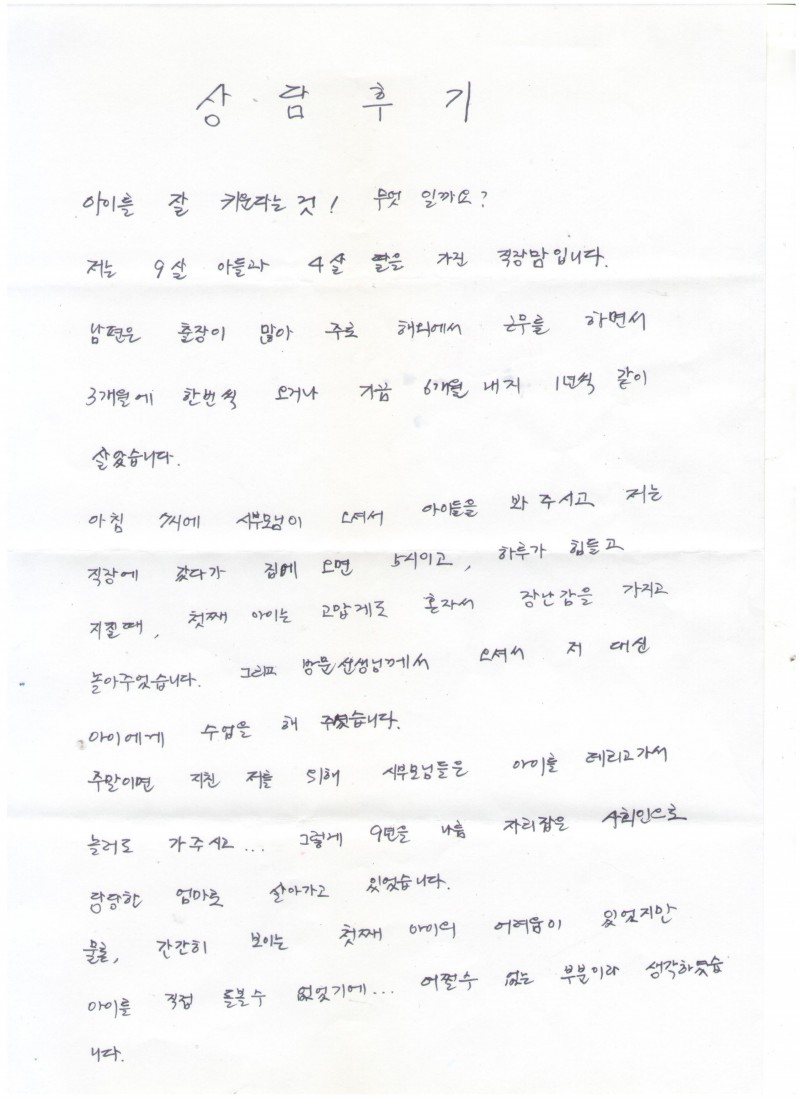 상·담 후 기
아이를 잘 키운다는 것! 무엇 일까요?
저는 9살 아들과 4살 딸을 가진 직장맘입니다.
남편은 출장이 많아 주로 해외에서 근무를 하면서
3개월에 한번씩 오거나 가끔 6개월 내지 1년씩 같이
살았습니다.
아침 7시에 시부모님이 오셔서 아이들을 봐 주시고 저는
직장에 갔다가 집에 오면 5시이고, 하루가 힘들고
지칠때, 첫째 아이는 고맙게도 혼자서 장난감을 가지고
놀아주었습니다. 그리고 방문선생님께서 오셔서 저 대신
아이에게 수업을 해 주셨습니다.
주말이면 지친 저를 위해 시부모님들은 아이를 데리고가서
놀러도 가주시고... 그렇게 9년을 나름 자리잡은 사회인으로
당당한 엄마로 살아가고 있었습니다.
물론, 간간히 보이는 첫째 아이의 어려움이 있었지만
아이를 직접 돌볼수 없었기에... 어쩔수 없는 부분이라 생각하였습
니다.